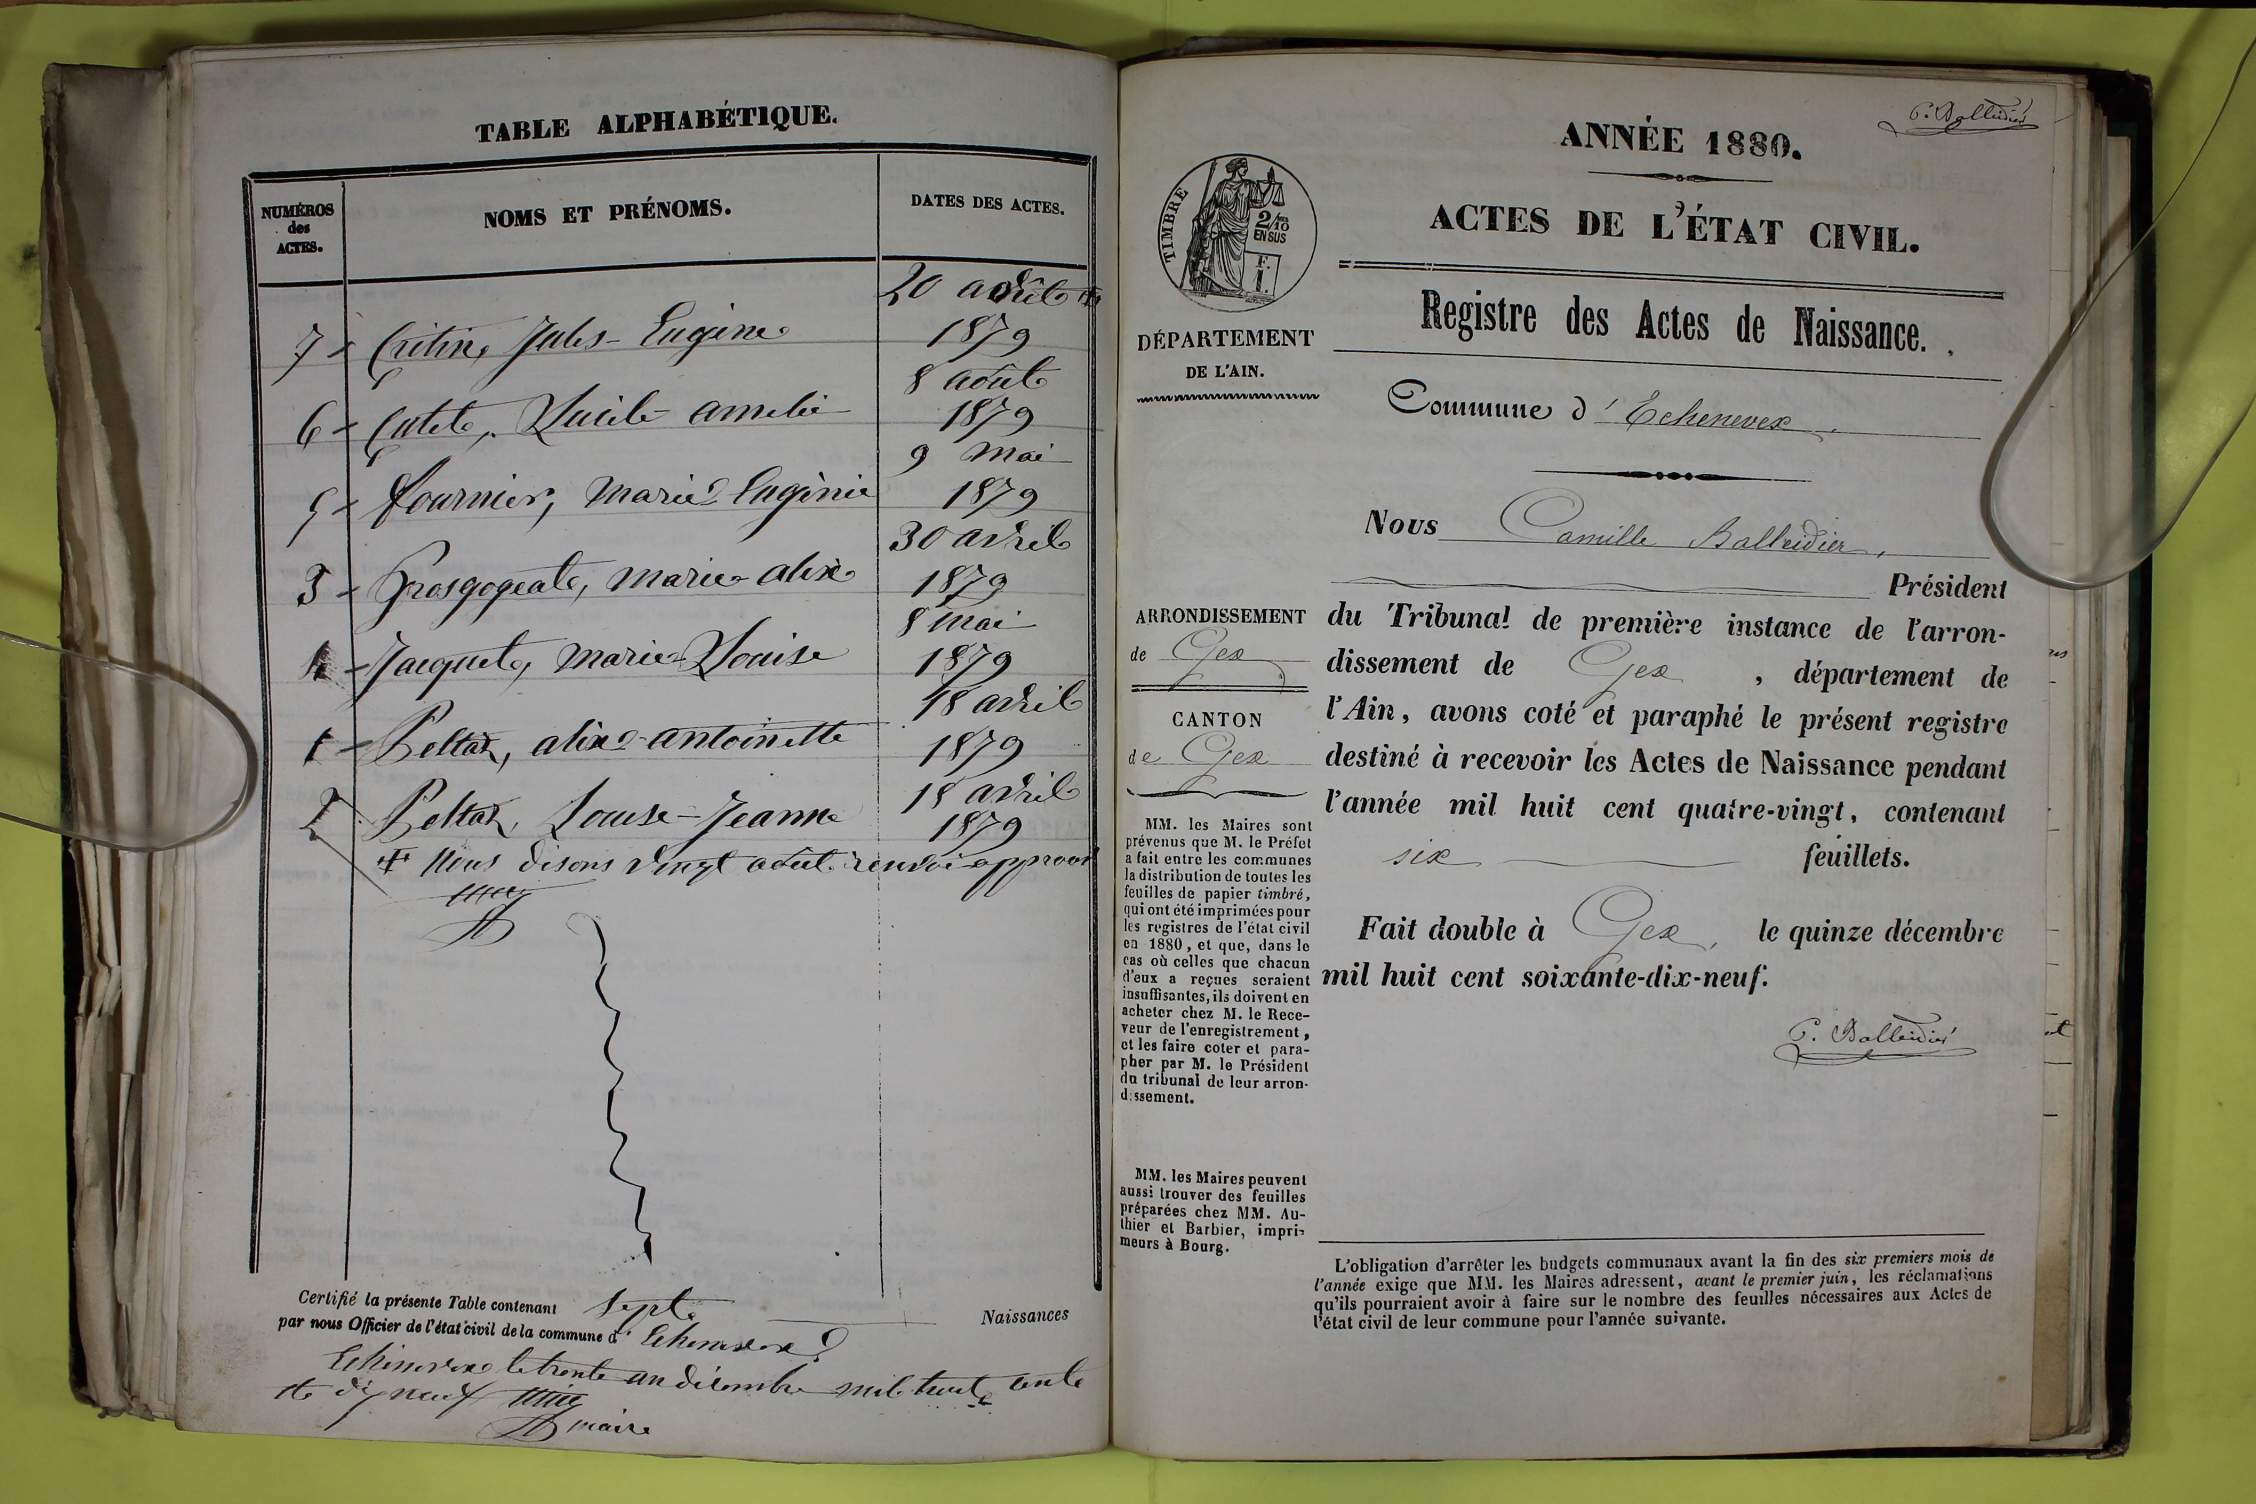 TABLE ALPHABÉTIQUE.
NUMÉROS
des
ACTES.
NOMS ET PRÉNOMS.
DATES DES ACTES.
20 août
7 - Critin, Jules-Eugène 1879
8 août
6 - Cutet, Lucile amelie 1879
9 mai
5 - fournier, marie Eugènie 1879
30 avril
3 - Grosgogeat, marie alix 1879
8 mai
4 - Jacquet, marie Louise 1879
18 avril
1 - Peltaz, alix antoinette 1879
18 avril
2 Peltaz, Louise-Jeanne 1879
Nous disons vingt août renvoi approuvé
Certifié la présente Table contenant sept Naissances
par nous Officier de l'état civil de la commune d' Echenevex
Echenevex le trente un décembre mil huit cent
dix neuf
maire
C. Balleidier
ANNÉE 1880.
ACTES DE L'ÉTAT CIVIL.
TIMBRE
2/10
EN SUS
F.
1.
Registre des Actes de Naissance.
DÉPARTEMENT
DE L'AIN.
Commune d'Echenevex
Nous Camille Balleidier,
Président
du Tribunal de première instance de l'arron-
dissement de Gex, département de
l'Ain, avons coté et paraphé le présent registre
destiné à recevoir les Actes de Naissance pendant
l'année mil huit cent quatre-vingt, contenant
six feuillets.
Fait double à Gex, le quinze décembre
mil huit cent soixante-dix-neuf.
C. Balleidier
ARRONDISSEMENT
de Gex
CANTON
de Gex
MM. les Maires sont
prévenus que M. le Préfet
a fait entre les communes
la distribution de toutes les
feuilles de papier timbré,
qui ont été imprimées pour
les registres de l'état civil
en 1880, et que, dans le
cas où celles que chacun
d'eux a reçues seraient
insuffisantes, ils doivent en
acheter chez M. le Rece-
veur de l'enregistrement,
et les faire coter et para-
pher par M. le Président
du tribunal de leur arron-
dissement.
MM. les Maires peuvent
aussi trouver des feuilles
préparées chez MM. Au-
thier et Barbier, impri-
meurs à Bourg.
L'obligation d'arrêter les budgets communaux avant la fin des six premiers mois de
l'année exige que MM. les Maires adressent, avant le premier juin, les réclamations
qu'ils pourraient avoir à faire sur le nombre des feuilles nécessaires aux Actes de
l'état civil de leur commune pour l'année suivante.